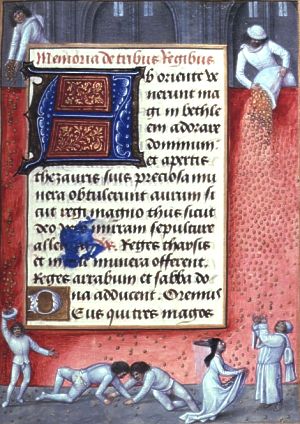 Memoria de tribus Regibus
Ab oriente ve
nerunt ma
gi in bethle
em adorare
dominum
et apertis
thezauris suis preciosa mu
nera obtulerunt aurum si
cut regi magno thus sicut
deo mirram sepulture
Reges tharsis
et munera offerent.
Reges arrabum et sabba do
na adducent. Oremus
Deus qui tres magos